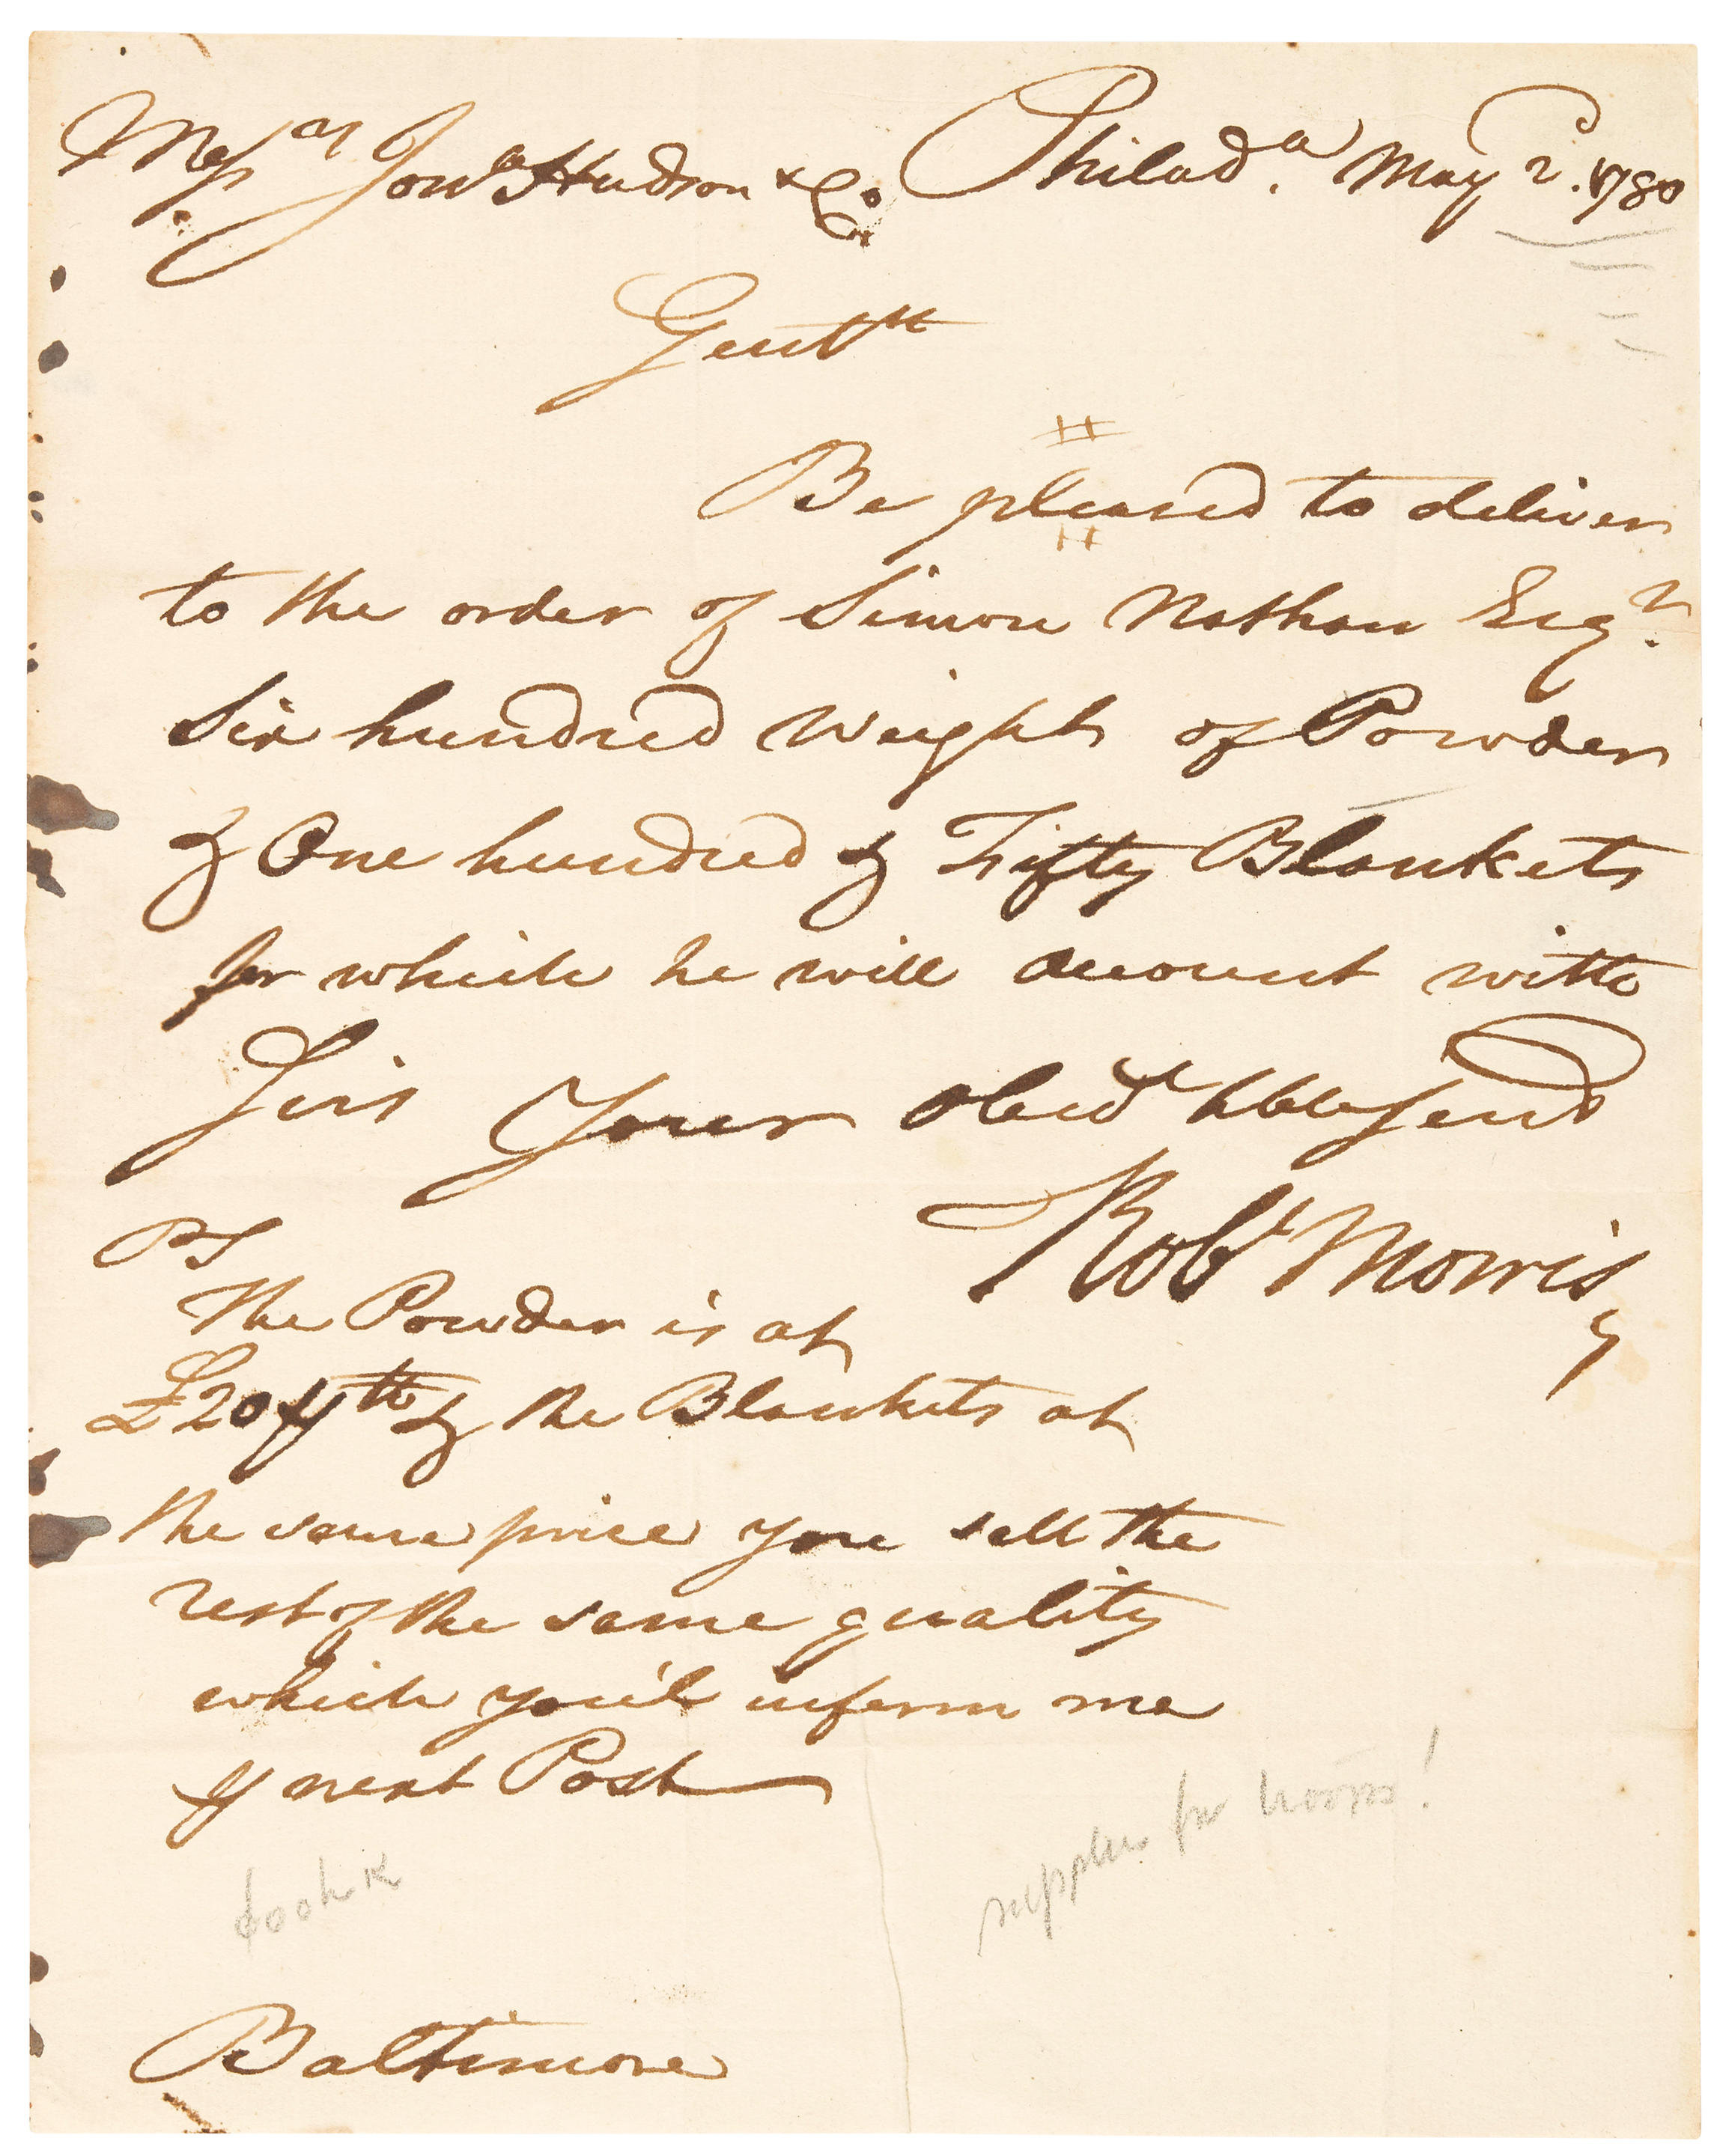 Mess.rs Jona Hudson & Co. Philad.a May 2. 1780
Gentn
Be pleased to deliver
to the order of Simon Nathan Esqr.
Six hundred Weight of Powder
& One hundred & Fifty Blankets
for which he will account with
Sirs Your obedt hble Servt
Robt Morris
PS
The Powder is at
£20 ⅌ lb & the Blankets at
the same price you sell the
rest of the same quality
which you'l inform me
⅌ next Post
supplies for troops!
Baltimore